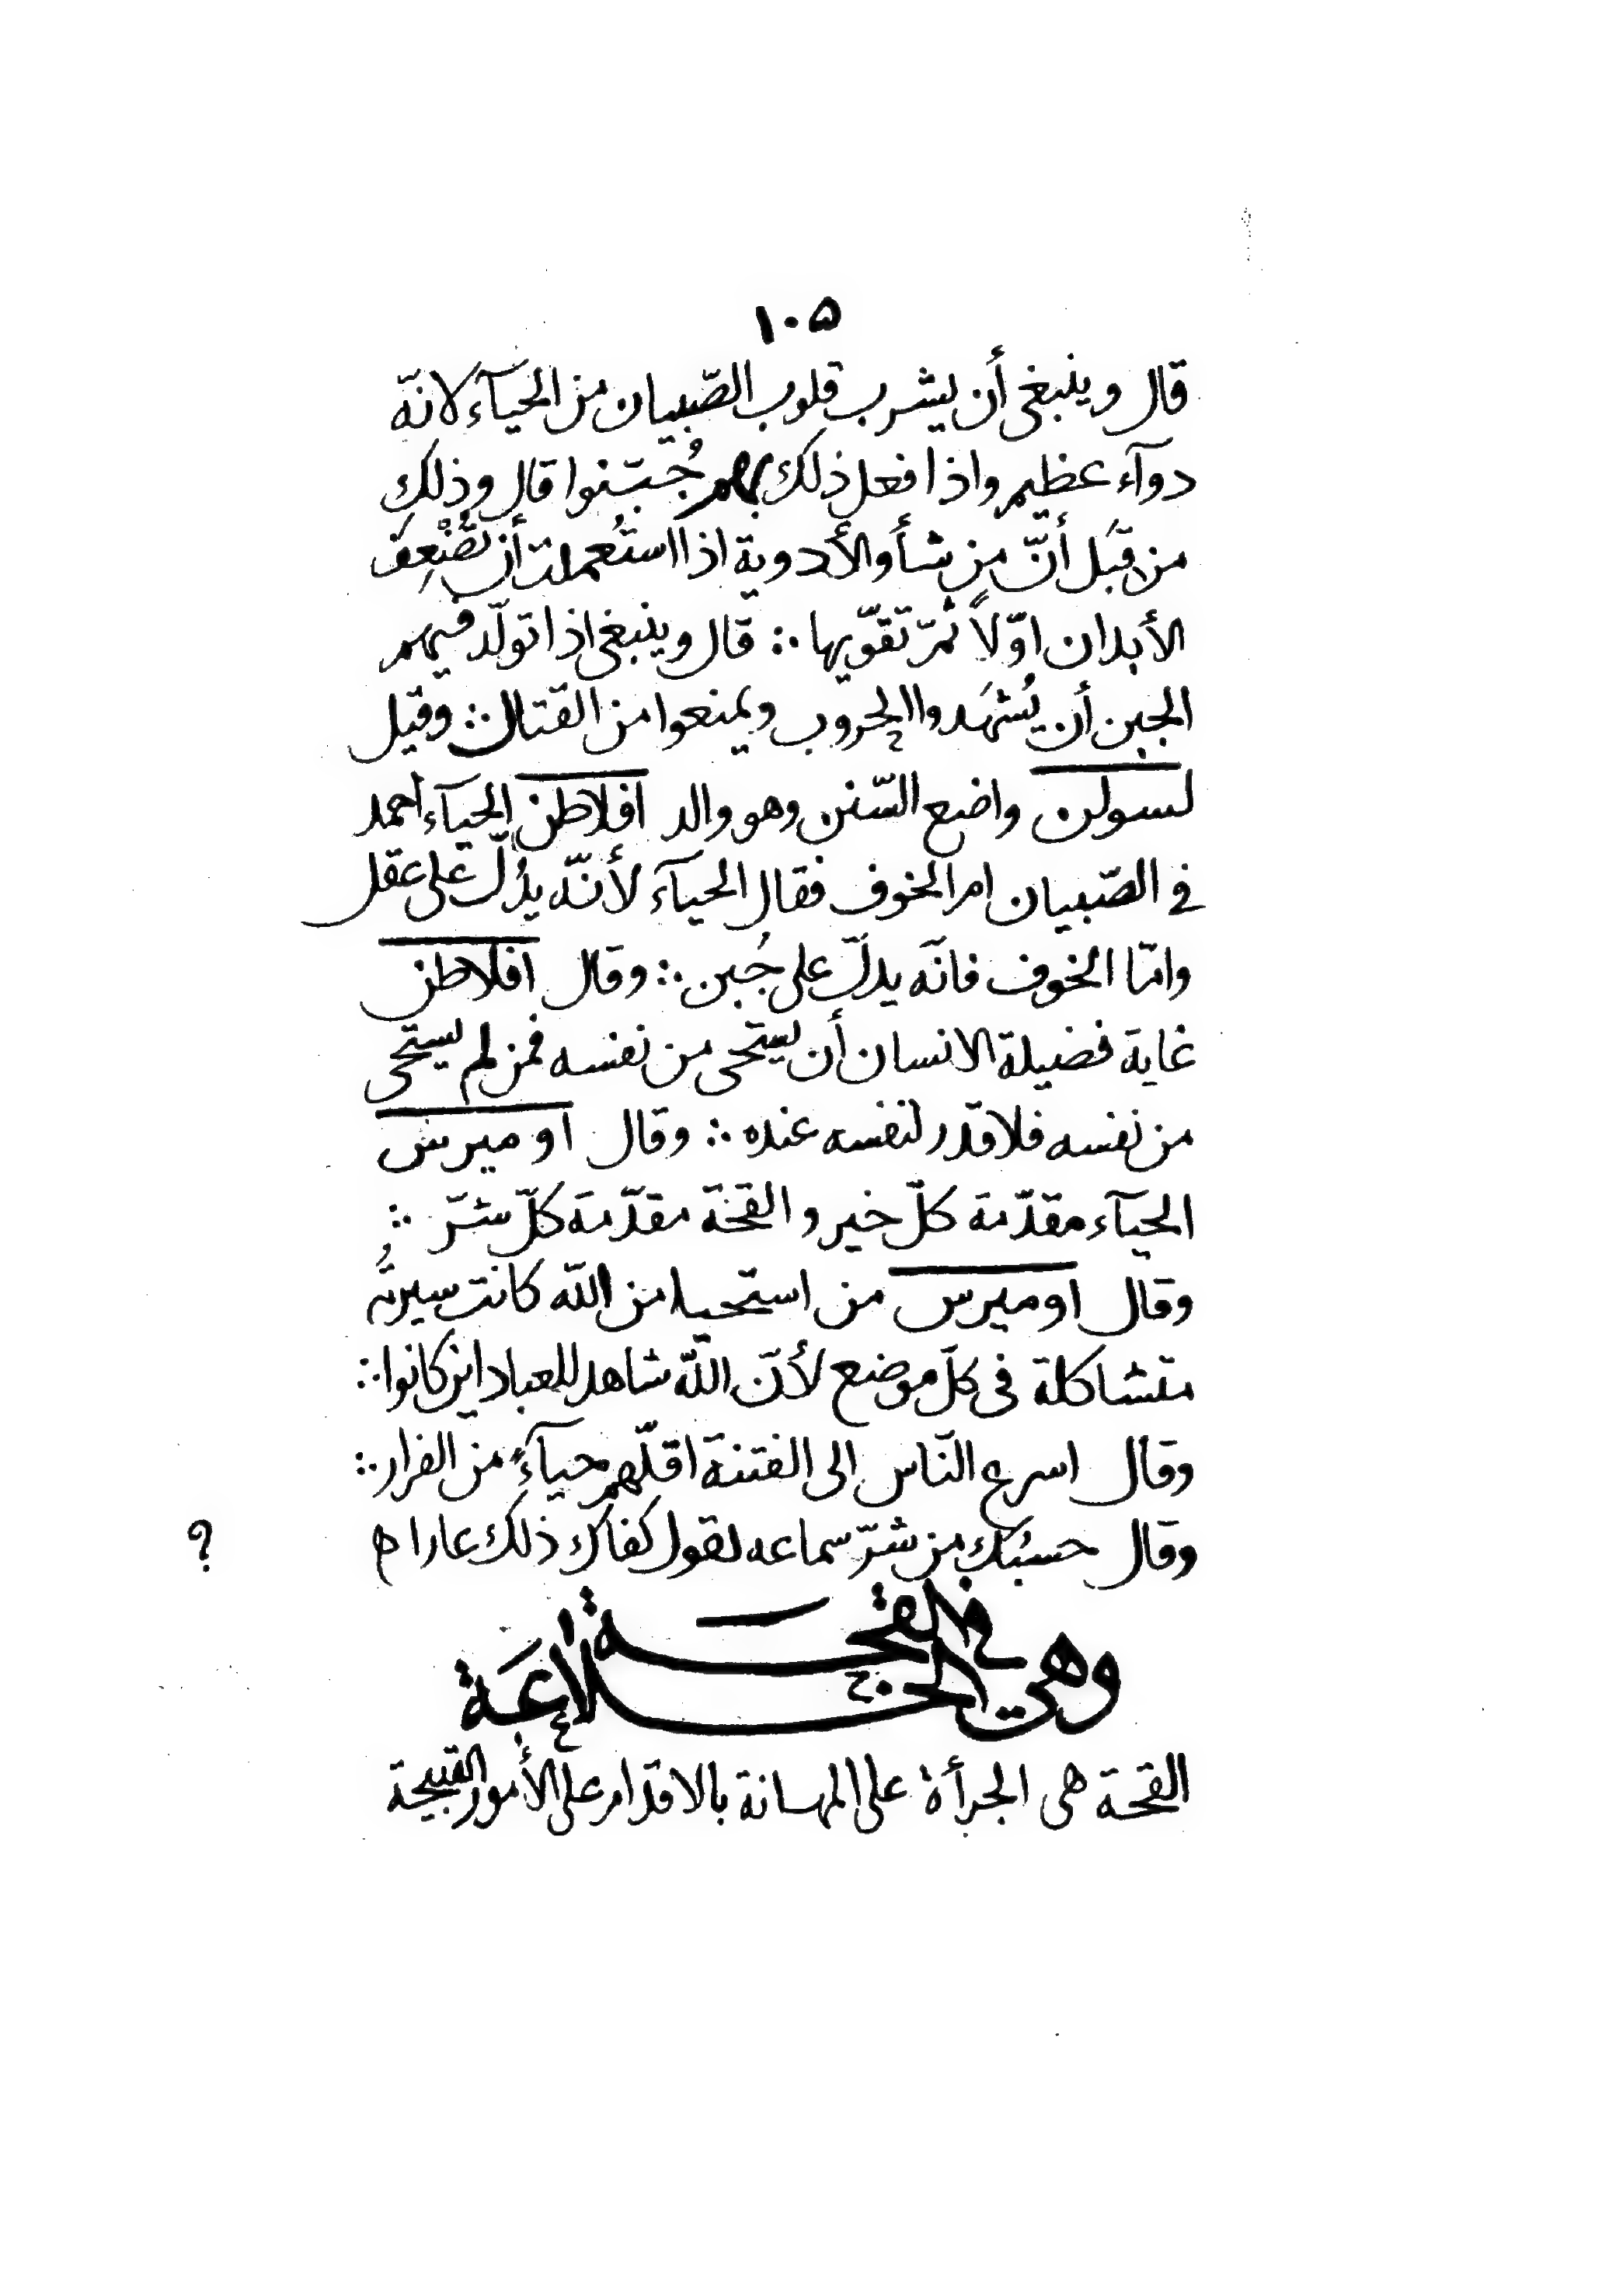 ١٠۵
قال وينبغى أن يشرب قلوب الصّبيان من الحيآء لانّه
دوآء عظيم واذا فعل ذلك بهم جُبّنوا قال وذلك
من قبَل أنّ من شأو الأدوية اذا استُعملت أن تُضْعِفَ
الأبدان اوّلاً ثمّ تقوّيها ∴ قال وينبغى اذا تولّد فيهم
الجبن أن يُشهَدوا الحروب ويمنعوا من القتال ∴ وقيل
لسولن واضع السّنن وهو والد افلاطن الحيآء احمد
فى الصّبيان ام الخوف فقال الحيآء لأنّه يدُلّ على عقل
وامّا الخوف فانّه يدلّ على جُبن ∴ وقال افلاطن
غاية فضيلة الانسان أن يستحى من نفسه فمن لم يستحى
من نفسه فلا قدر لنفسه عنده ∴ وقال اوميرس
الحيآء مقدّمة كلّ خير والقحة مقدّمة كلّ شرّ ∴
وقال اوميرس من استحيا من اللّه كانت سيرتُه
متشاكلة فى كلّ موضع لأنّ اللّه شاهد للعباد اين كانوا ∴
وقال اسرع النّاس الى الفتنة اقلّهم حيآءً من الفرار ∴
وقال حسبُك من شرّ سماعه لقول كفاك ذلك عارا ه
؟
فى القحة
وهى الخلاعة
القحة هى الجرأة على المهانة بالاقدام على الأمور القبيحة